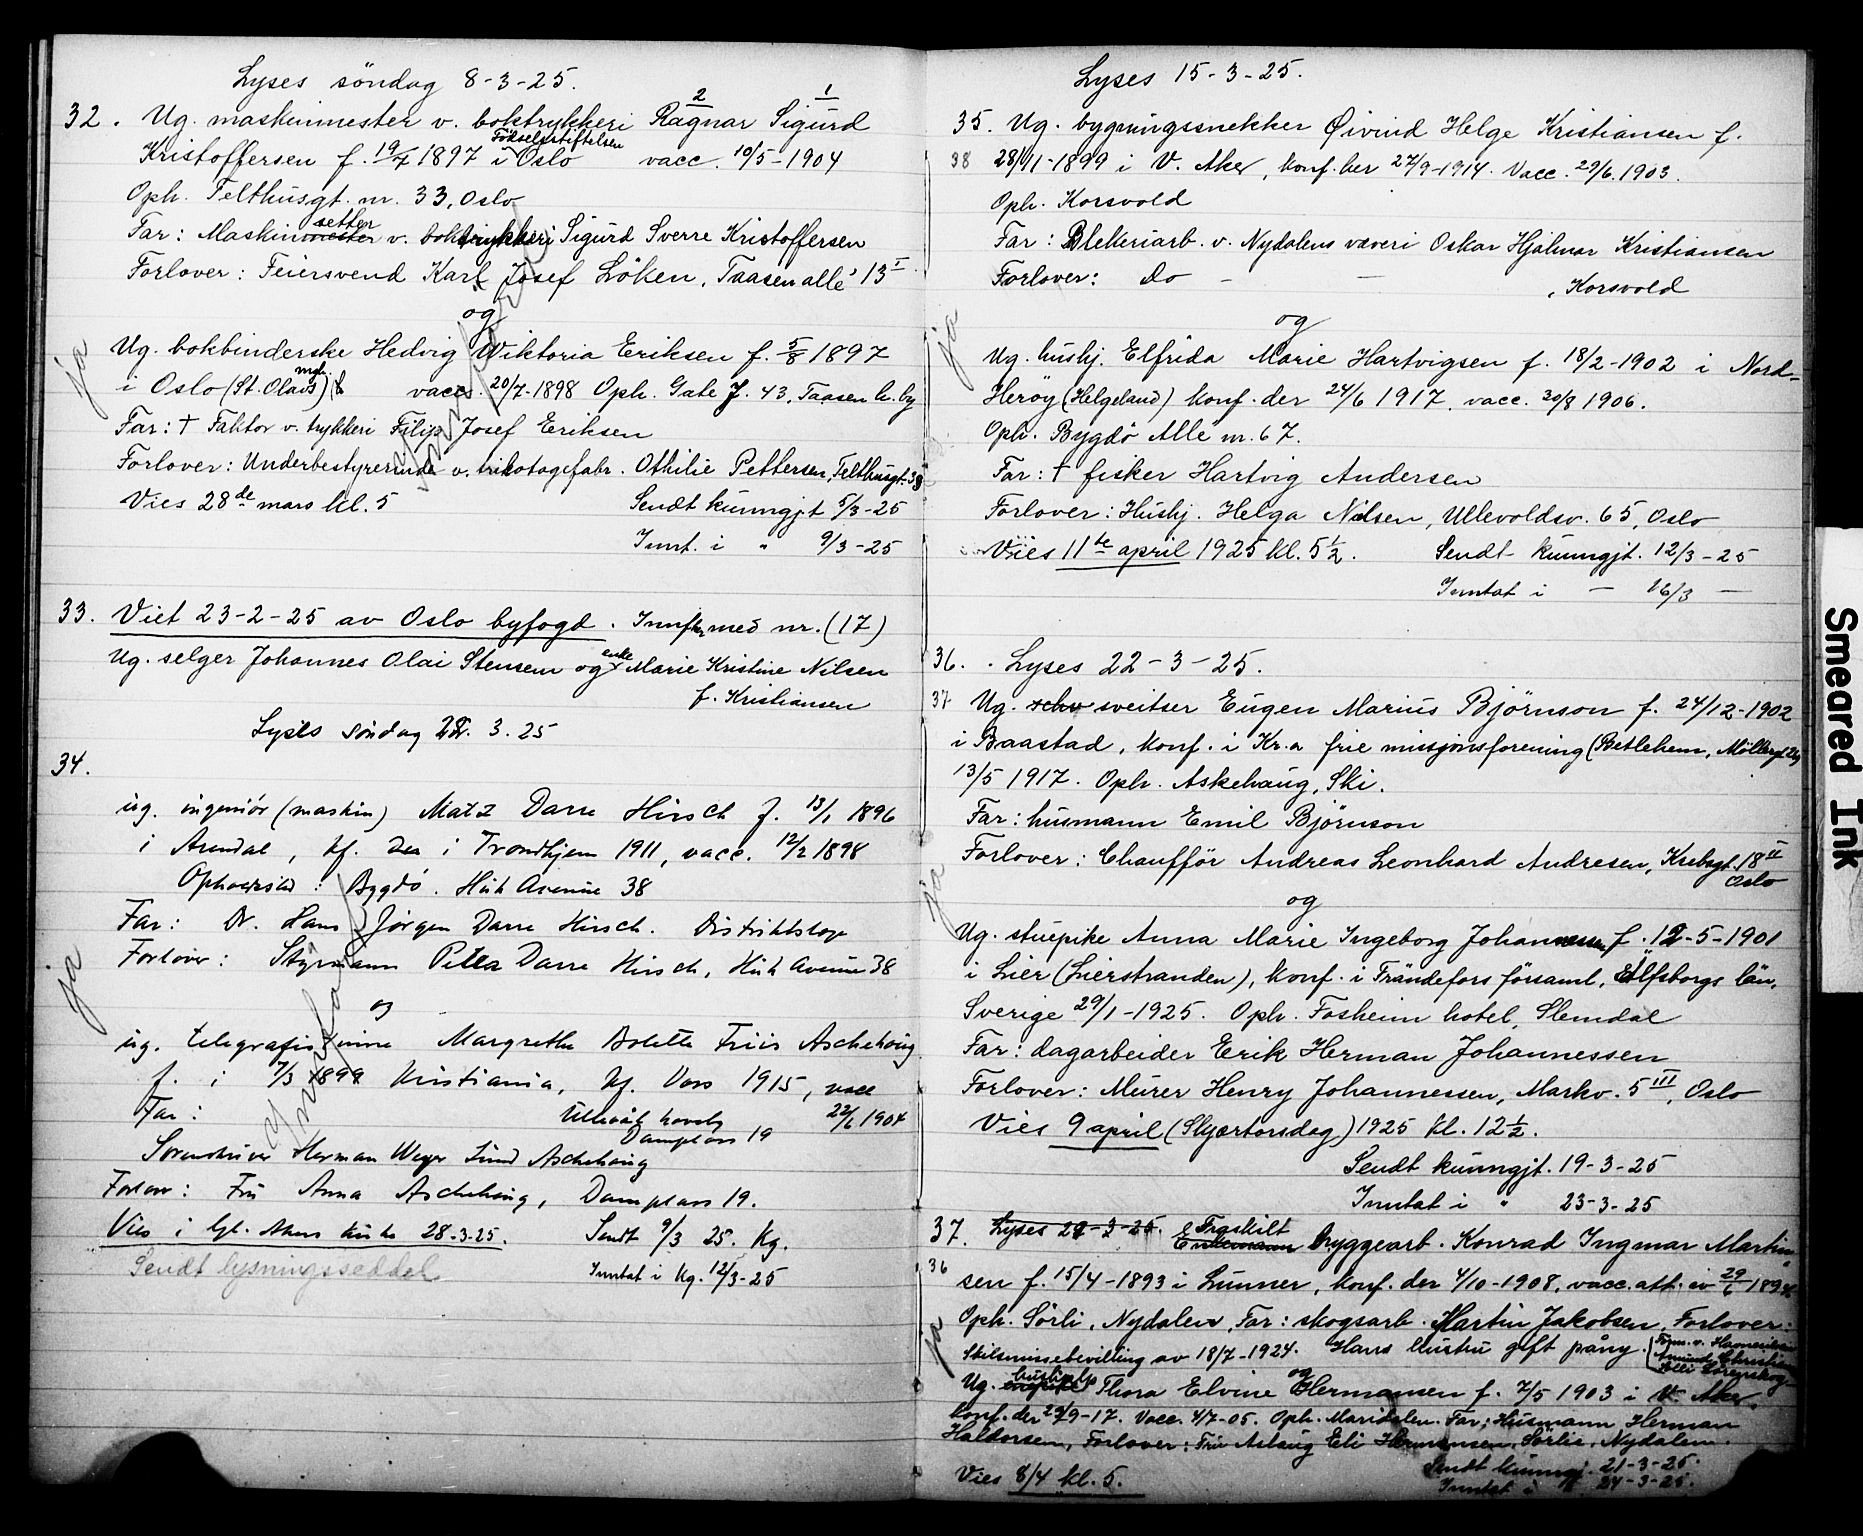 Lyses söndag 8-3-25.
2 1
32. Ug. maskinmester v. boktrykkeri Ragnar Sigurd
Födselsstiftelsen
Kristoffersen f. 19/7 1897 i Oslo vacc. 10/5-1904
Oph. Telthusgt. nr. 33, Oslo
setter
Far: Maskinmester v. boktrykkeri Sigurd Sverre Kristoffersen
Forlover: Feiersvend Karl Josef Löken, Taasen allé 13 I
og
ja
Ug. bokbinderske Hedvig Wiktoria Eriksen f. 5/8 1897
i Oslo (St. Olavs mgh.) vacc. 20/7-1898 Oph. Gate J. 43, Taasen h. by
Far: † Faktor v. trykkeri Filip Josef Eriksen
Forlover: Underbestyrerinde v. trikotagefabr. Othilie Pettersen, Telthusgt. 33
Vies 28de mars kl. 5 Sendt kunngjt 5/3-25
Innt. i " 9/3-25
33. Viet 23-2-25 av Oslo byfogd. Innf. med nr. (17)
enke
Ug. selger Johannes Olai Stensem og Marie Kristine Nilsen
f. Kristiansen
Lyses söndag 3. 25
34.
ug. ingeniör (maskin) Matz Darre Hirsch f. 13/1 1896
i Arendal, kf. i Trondhjem 1911, vacc. 12/2 1898
Opholdssted: Bygdö. Huk Avenue 38
Far: Dr. Hans Jörgen Darre Hirsch. Distriktslæge
Forlover: Styrmann Petter Darre Hirsch, Huk Avenue 38
ja
og
ug. telegrafistinne Margrethe Bolette Friis Aschehoug
f. i 7/3 1899 Kristiania, kf. Voss 1915, vacc
Far: Ullevål haveby 22/6 1904
Damplass 19
Sorenskriver Herman Weyer Lund Aschehoug
Forlover: Fru Anna Aschehoug, Damplass 19.
Vies i Gl. Akers kirke 28-3-25. Sendt 9/3 25. Kg.
Sendt lysningsseddel Inntat i Kg. 12/3-25
Lyses 15-3-25.
35. Ug. bygningssnekker Öivind Helge Kristiansen f.
38 28/11-1899 i V. Aker, konf. her 27/9-1914. Vacc. 29/6.1903.
Oph. Korsvold
Far: Blekeriarb. v. Nydalens væveri Oskar Hjalmar Kristiansen
Forlover: Do - — , Korsvold
ja
og
Ug. hushj. Elfrida Marie Hartvigsen f. 18/2-1902 i Nord-
Heröy (Helgeland) konf. der 24/6 1917, vacc. 30/8 1906.
Oph. Bygdö Allé nr. 67.
Far: † fisker Hartvig Andersen
Forlover: Hushj. Helga Nilsen, Ullevoldsv. 65, Oslo
Vies 11te april 1925 kl. 5 1/2. Sendt kunngjt. 12/3-25
Inntat i — 16/3 —
36. . Lyses 22-3-25.
37 Ug. sveitser Eugen Marius Björnson f. 24/12-1902
i Baastad, konf. i Kr.a frie missjonsforening (Betlehem, Möllergt.
13/5 1917. Oph. Askehaug, Ski.
Far: husmann Emil Björnson
Forlover: Chauffför Andreas Leonhard Andresen, Krebsgt. 18 II
Oslo
ja
og
Ug. stuepike Anna Marie Ingeborg Johannessen f. 12-5-1901
i Lier (Lierstranden), konf. i Frändefors församl., Elfsborgs län,
Sverige 29/1-1925. Oph. Fosheim hotel, Slemdal
Far: dagarbeider Erik Herman Johannessen
Forlover: Murer Henry Johannessen, Markv. 5 III, Oslo
Vies 9 april (Skjærtorsdag) 1925 kl. 12 1/2.
Sendt kunngjt. 19-3-25
Inntat i " 23-3-25
37. Lyses 22-3-25. Fraskilt
Enkemann byggearb. Konrad Ingmar Martin-
36 sen f. 15/4-1893 i Lunner, konf. der 4/10-1908, vacc. att. av 29/6 1894
Oph. Sörli, Nydalen, Far: skogsarb. Martin Jakobsen, Forlover:
ja
Skilsmissebevilling av 18/7-1924. Hans hustru gift påny.
hushjelp og
Ug. Thora Elvine Hermansen f. 7/5 1903 i V. Aker,
konf. der 29/9-17. Vacc. 4/7-05. Oph. Maridalen. Far: Husmann Herman
Haldorsen, Forlover: Fru Aslaug Eli Hermansen, Sörlie, Nydalen.
Vies 8/4 kl. 5. Sendt kunngj. 21-3-25.
Inntat i " 24-3-25.
Smeared Ink